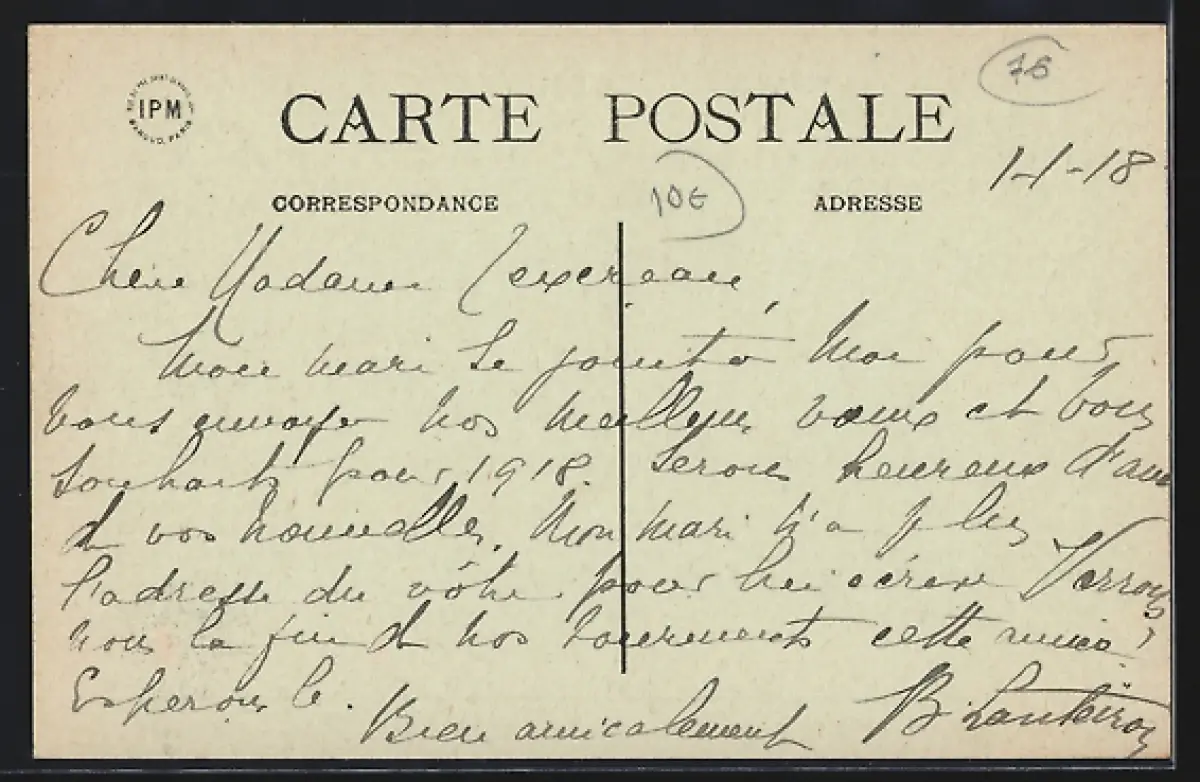 IPM
CARTE POSTALE
76
1-1-18
CORRESPONDANCE
10€
ADRESSE
Chère Madame
Mon mari se joint à moi pour
vous envoyer nos meilleurs voeux et bons
souhaits pour 1918. Serons heureux d'avoir
de vos nouvelles. Mon mari n'a plus
l'adresse du vôtre pour lui écrire Verrons
nous la fin de nos tourments cette année?
Espérons le.
Bien amicalement
B.